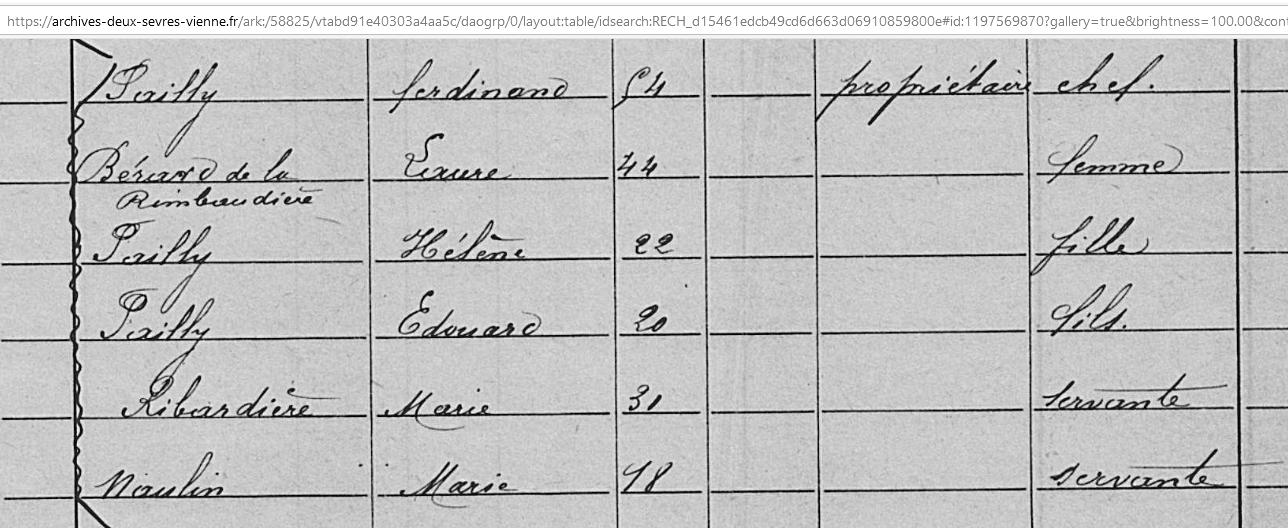 https://archives-deux-sevres-vienne.fr/ark:/58825/vtabd91e40303a4aa5c/daogrp/0/layout:table/idsearch:RECH_d15461edcb49cd6d663d06910859800e#id:1197569870?gallery=true&brightness=100.00&cont
Pailly ferdinand 54 propriétaire chef.
Bérard de la Laure 44 femme
Rimbaudière
Pailly Hélène 22 fille
Pailly Edouard 20 fils.
Ribardière Marie 31 servante
Naulin Marie 18 servante